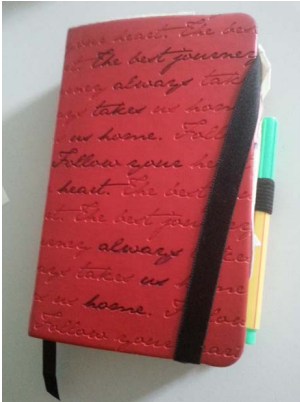 your heart. The bes
The best journey
ney always tak
takes us hom
us home. Foll
Follow your he
heart. The best
t. The best jour
ney always
ys takes us h
s us home.
Follow your heart